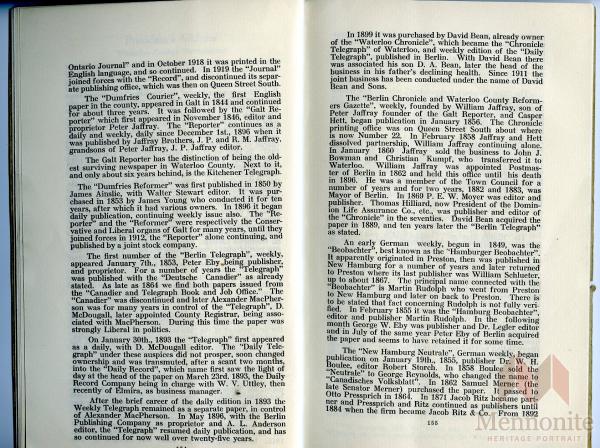 Ontario Journal" and in October 1918 it was printed in the
English language, and so continued. In 1919 the "Journal"
joined forces with the "Record", and discontinued its separ-
ate publishing office, which was then on Queen Street South.
The "Dumfries Courier", weekly, the first English
paper in the county, appeared in Galt in 1844 and continued
for about three years. It was followed by the "Galt Re-
porter" which first appeared in November 1846, editor and
proprietor Peter Jaffray. The "Reporter" continues as a
daily and weekly, daily since December 1st., 1896 when it
was published by Jaffray Brothers, J. P. and R. M. Jaffray,
grandsons of Peter Jaffray, J. P. Jaffray editor.
The Galt Reporter has the distinction of being the old-
est surviving newspaper in Waterloo County. Next to it,
and only about six years behind, is the Kitchener Telegraph.
The "Dumfries Reformer" was first published in 1850 by
James Ainslie, with Walter Stewart editor. It was pur-
chased in 1853 by James Young who conducted it for ten
years, after which it had various owners. In 1896 it began
daily publication, continuing weekly issue also. The "Re-
porter" and the "Reformer" were respectively the Conser-
vative and Liberal organs of Galt for many years, until they
joined forces in 1912, the "Reporter" alone continuing, and
published by a joint stock company.
The first number of the "Berlin Telegraph", weekly,
appeared January 7th., 1853, Peter Eby being publisher,
and proprietor. For a number of years the "Telegraph"
was published with the "Deutsche Canadier" as already
stated. As late as 1864 we find both papers issued from
the "Canadier and Telegraph Book and Job Office." The
"Canadier" was discontinued and later Alexander MacPher-
son was for many years in control of the "Telegraph", D.
McDougall, later appointed County Registrar, being asso-
ciated with MacPherson. During this time the paper was
strongly Liberal in politics.
On January 30th., 1893 the "Telegraph" first appeared
as a daily, with D. McDougall editor. The "Daily Tele-
graph" under these auspices did not prosper, soon changed
ownership and was transmuted, after a scant two months,
into the "Daily Record", which name first saw the light of
day at the head of the paper on March 23rd. 1893, the Daily
Record Company being in charge with W. V. Uttley, then
recently of Elmira, as business manager.
After the brief career of the daily edition in 1893 the
Weekly Telegraph remained a separate paper, in control
of Alexander MacPherson. In May 1896, with the Berlin
Publishing Company as proprietor and A. L. Anderson
editor, the "Telegraph" resumed daily publication, and has
so continued for now well over twenty-five years.
In 1899 it was purchased by David Bean, already owner
of the "Waterloo Chronicle", which became the "Chronicle
Telegraph" of Waterloo, and weekly edition of the "Daily
Telegraph", published in Berlin. With David Bean there
was associated his son D. A. Bean, later the head of the
business in his father's declining health. Since 1911 the
joint business has been conducted under the name of David
Bean and Sons.
The "Berlin Chronicle and Waterloo County Reform-
ers Gazette", weekly, founded by William Jaffray, son of
Peter Jaffray founder of the Galt Reporter, and Casper
Hett, began publication in January 1856. The Chronicle
printing office was on Queen Street South about where
is now Number 22. In February 1858 Jaffray and Hett
dissolved partnership, William Jaffray continuing alone.
In January 1860 Jaffray sold the business to John J.
Bowman and Christian Kumpf, who transferred it to
Waterloo. William Jaffray was appointed Postmas-
ter of Berlin in 1862 and held this office until his death
in 1896. He was a member of the Town Council for a
number of years and for two years, 1882 and 1883, was
Mayor of Berlin. In 1869 P. E. W. Moyer was editor and
publisher. Thomas Hilliard, now President of the Domin-
ion Life Assurance Co., etc., was publisher and editor of
the "Chronicle" in the seventies. David Bean acquired the
paper in 1889, and ten years later the "Berlin Telegraph"
as stated.
An early German weekly, begun in 1849, was the
"Beobachter", best known as the "Hamburger Beobachter".
It apparently originated in Preston, then was published in
New Hamburg for a number of years and later returned
to Preston where its last publisher was William Schlueter,
up to about 1867. The principal name connected with the
"Beobachter" is Martin Rudolph who went from Preston
to New Hamburg and later on back to Preston. There is
to be stated that fact concerning Rudolph is not fully veri-
fied. In February 1855 it was the "Hamburg Beobachter",
editor and publisher Martin Rudolph. In the following
month George W. Eby was publisher and Dr. Legler editor
and in July of the same year Peter Eby of Berlin acquired
the paper and seems to have retained it for some time.
The "New Hamburg Neutrale", German weekly, began
publication on January 19th., 1855, publisher Dr. W. H.
Boulee, editor Robert Storch. In 1858 Boulee sold the
"Neutrale" to George Reynolds, who changed the name to
"Canadisches Volksblatt". In 1862 Samuel Merner (the
late Senator Merner) purchased the paper. It passed to
Otto Pressprich in 1864. In 1871 Jacob Ritz became part-
ner and Pressprich and Ritz continued as publishers until
1884 when the firm became Jacob Ritz & Co. From 1892
155
Mennonite
HERITAGE PORTRAIT